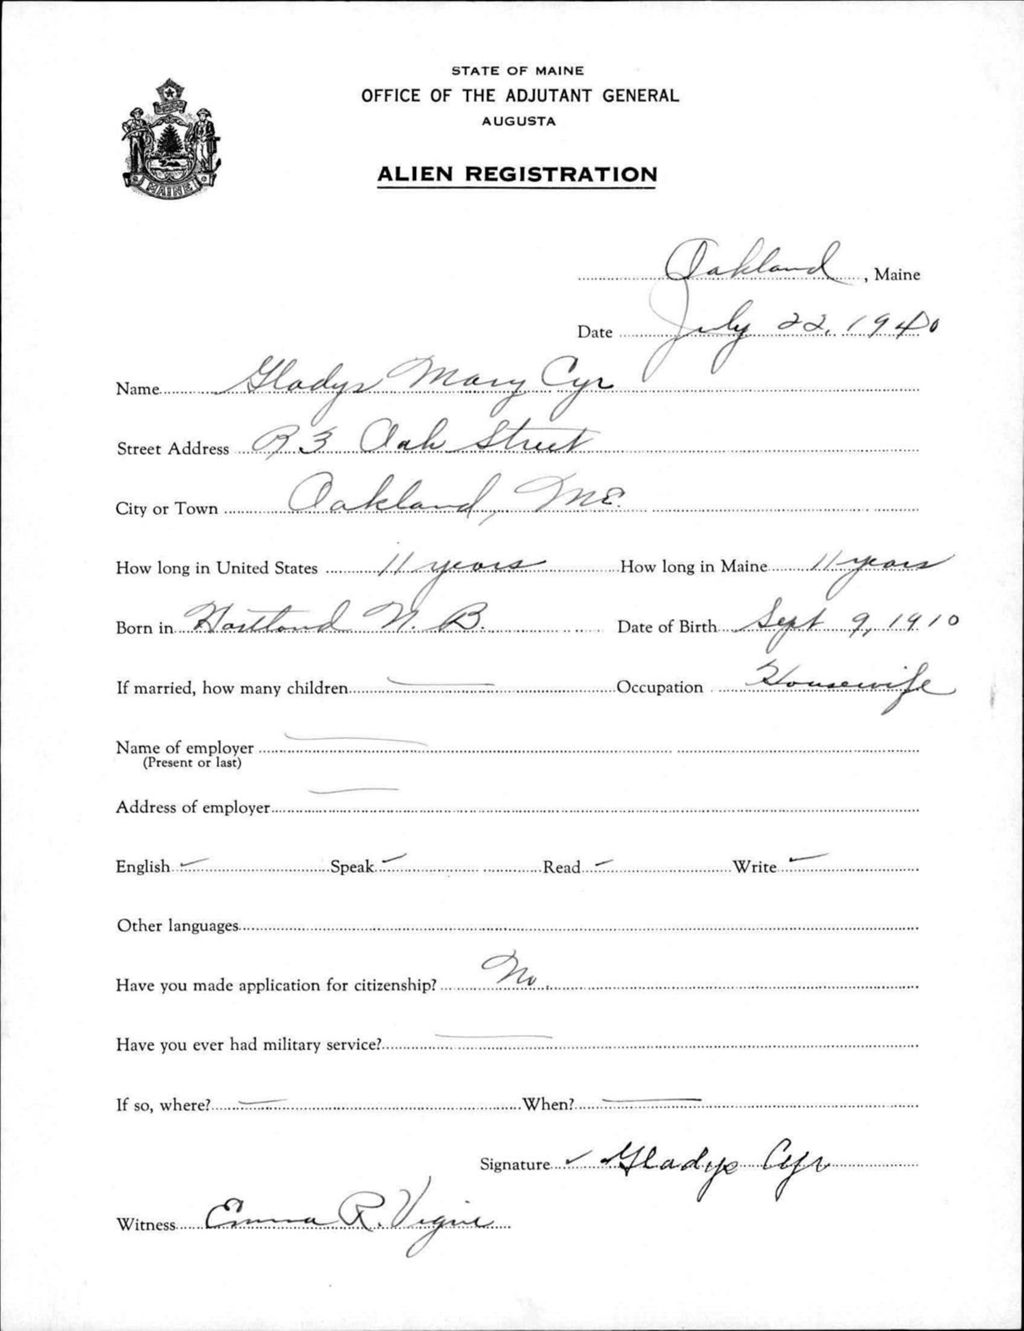 STATE OF MAINE
OFFICE OF THE ADJUTANT GENERAL
AUGUSTA
ALIEN REGISTRATION
MAINE
Oakland, Maine
Date July 22, 1940
Name Gladys Mary Cyr
Street Address R 3 Oak Street
City or Town Oakland, ME.
How long in United States 11 years How long in Maine 11 years
Born in Hartland N. B. Date of Birth Sept 9, 1910
If married, how many children — Occupation Housewife
Name of employer —
(Present or last)
Address of employer —
English ✓ Speak ✓ Read ✓ Write ✓
Other languages
Have you made application for citizenship? No.
Have you ever had military service? —
If so, where? — When? —
Signature ✓ Gladys Cyr
Witness Emma R. Vigue